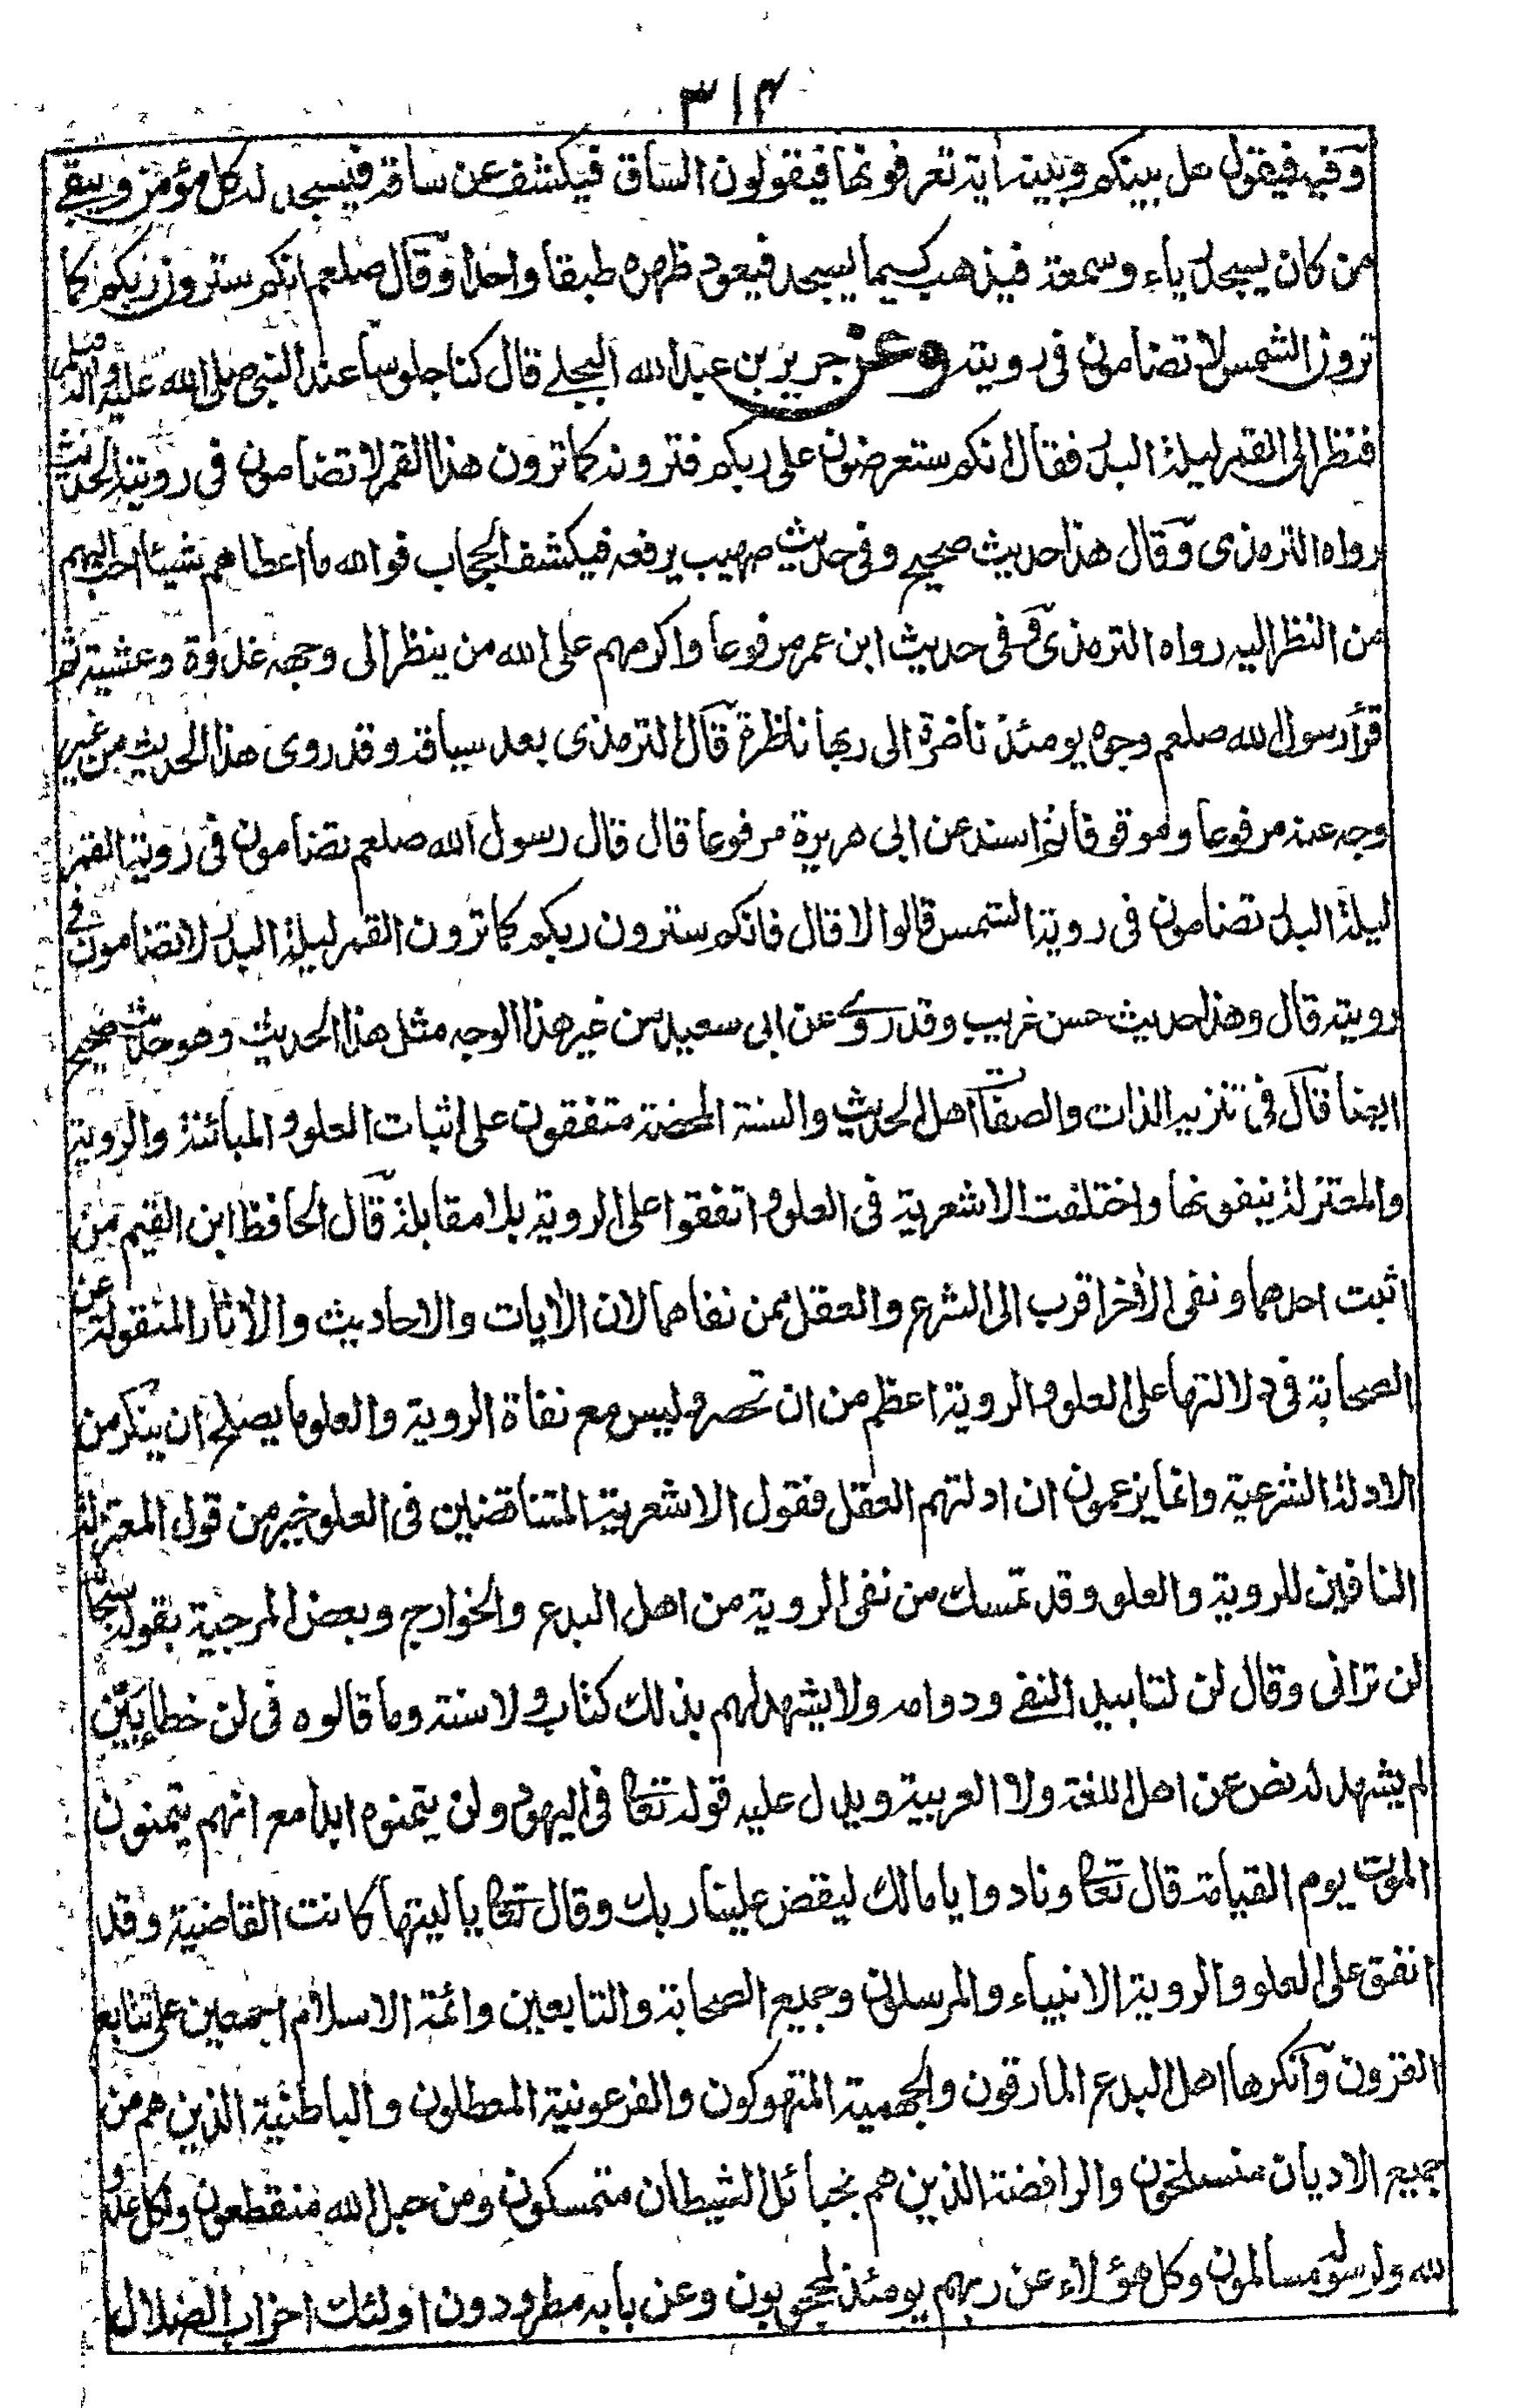 ٣١٤
وفيه فيقول هل بينكم وبينه آية تعرفونها فيقولون الساق فيكشف عن ساقه فيسجد له كل مؤمن ويبقى
من كان يسجد رياء وسمعة فيذهب كيما يسجد فيعود ظهره طبقا واحدا وقال صلعم انكم سترون ربكم كما
ترون الشمس لا تضامون فى رويته وعن جرير بن عبد الله البجلے قال كنا جلوسا عند النبى صلى الله عليه وآله وسلم
فنظر الى القمر ليلة البدر فقال انكم ستعرضون على ربكم فترونه كما ترون هذا القمر لا تضامون فى رويته الحديث
رواه الترمذى وقال هذا حديث صحيح وفى حديث صهيب يرفعه فيكشف الحجاب فوالله ما اعطاهم شيئا احب اليهم
من النظر اليه رواه الترمذى وفى حديث ابن عمر مرفوعا واكرمهم على الله من ينظر الى وجهه غدوة وعشية ثم
قرأ رسول الله صلعم وجوه يومئذ ناضرة الى ربها ناظرة قال الترمذى بعد سياقه وقد روى هذا الحديث من غير
وجه عنه مرفوعا وموقوفا ثم اسند عن ابى هريرة مرفوعا قال قال رسول الله صلعم تضامون فى روية القمر
ليلة البدر تضامون فى روية الشمس قالوا لا قال فانكم سترون ربكم كما ترون القمر ليلة البدر لا تضامون فے
رويته قال وهذا حديث حسن غريب وقد روى عن ابى سعيد من غير هذا الوجه مثل هذا الحديث وهو حديث صحيح
ايضا قال فى تنزيه الذات والصفات اهل الحديث والسنة المحضة متفقون على اثبات العلو والمبائنة والروية
والمعتزلة ينفونها واختلفت الاشعرية فى العلو واتفقوا على الروية بلا مقابلة قال الحافظ ابن القيم من
اثبت احدهما ونفى الآخر اقرب الى الشرع والعقل ممن نفاهما لان الآيات والاحاديث والآثار المنقولة عن
الصحابة فى دلالتها على العلو والروية اعظم من ان تحصر وليس مع نفاة الروية والعلو ما يصلح ان ينكر من
الادلة الشرعية وانما يزعمون ان ادلتهم العقل فقول الاشعرية المتناقضين فى العلو خير من قول المعتزلة
النافين للروية والعلو وقد تمسك من نفى الروية من اهل البدع والخوارج وبعض المرجية بقوله سبحانه
لن ترانى وقال لن لتابيد النفے ودوامه ولا يشهد لهم بذلك كتاب ولا سنة وما قالوه فى لن خطا بين
لم يشهد له نص عن اهل اللغة ولا العربية ويدل عليه قوله تعا فى اليهود ولن يتمنوه ابدا مع انهم يتمنون
الموت يوم القيامة قال تعا ونادوا يا مالك ليقض علينا ربك وقال تعا يا ليتها كانت القاضية وقد
اتفق على العلو والروية الانبياء والمرسلون وجميع الصحابة والتابعين وائمة الاسلام اجمعين على تتابع
القرون وانكرها اهل البدع المارقون والجهمية المتهوكون والفرعونية المعطلون والباطنية الذين هم من
جميع الاديان منسلخون والرافضة الذين هم بحبائل الشيطان متمسكون ومن حبل الله منقطعون ولكل عدو
لله ولرسوله مسالمون وكل هؤلاء عن ربهم يومئذ لمحجوبون وعن بابه مطرودون اولئك احزاب الضلال